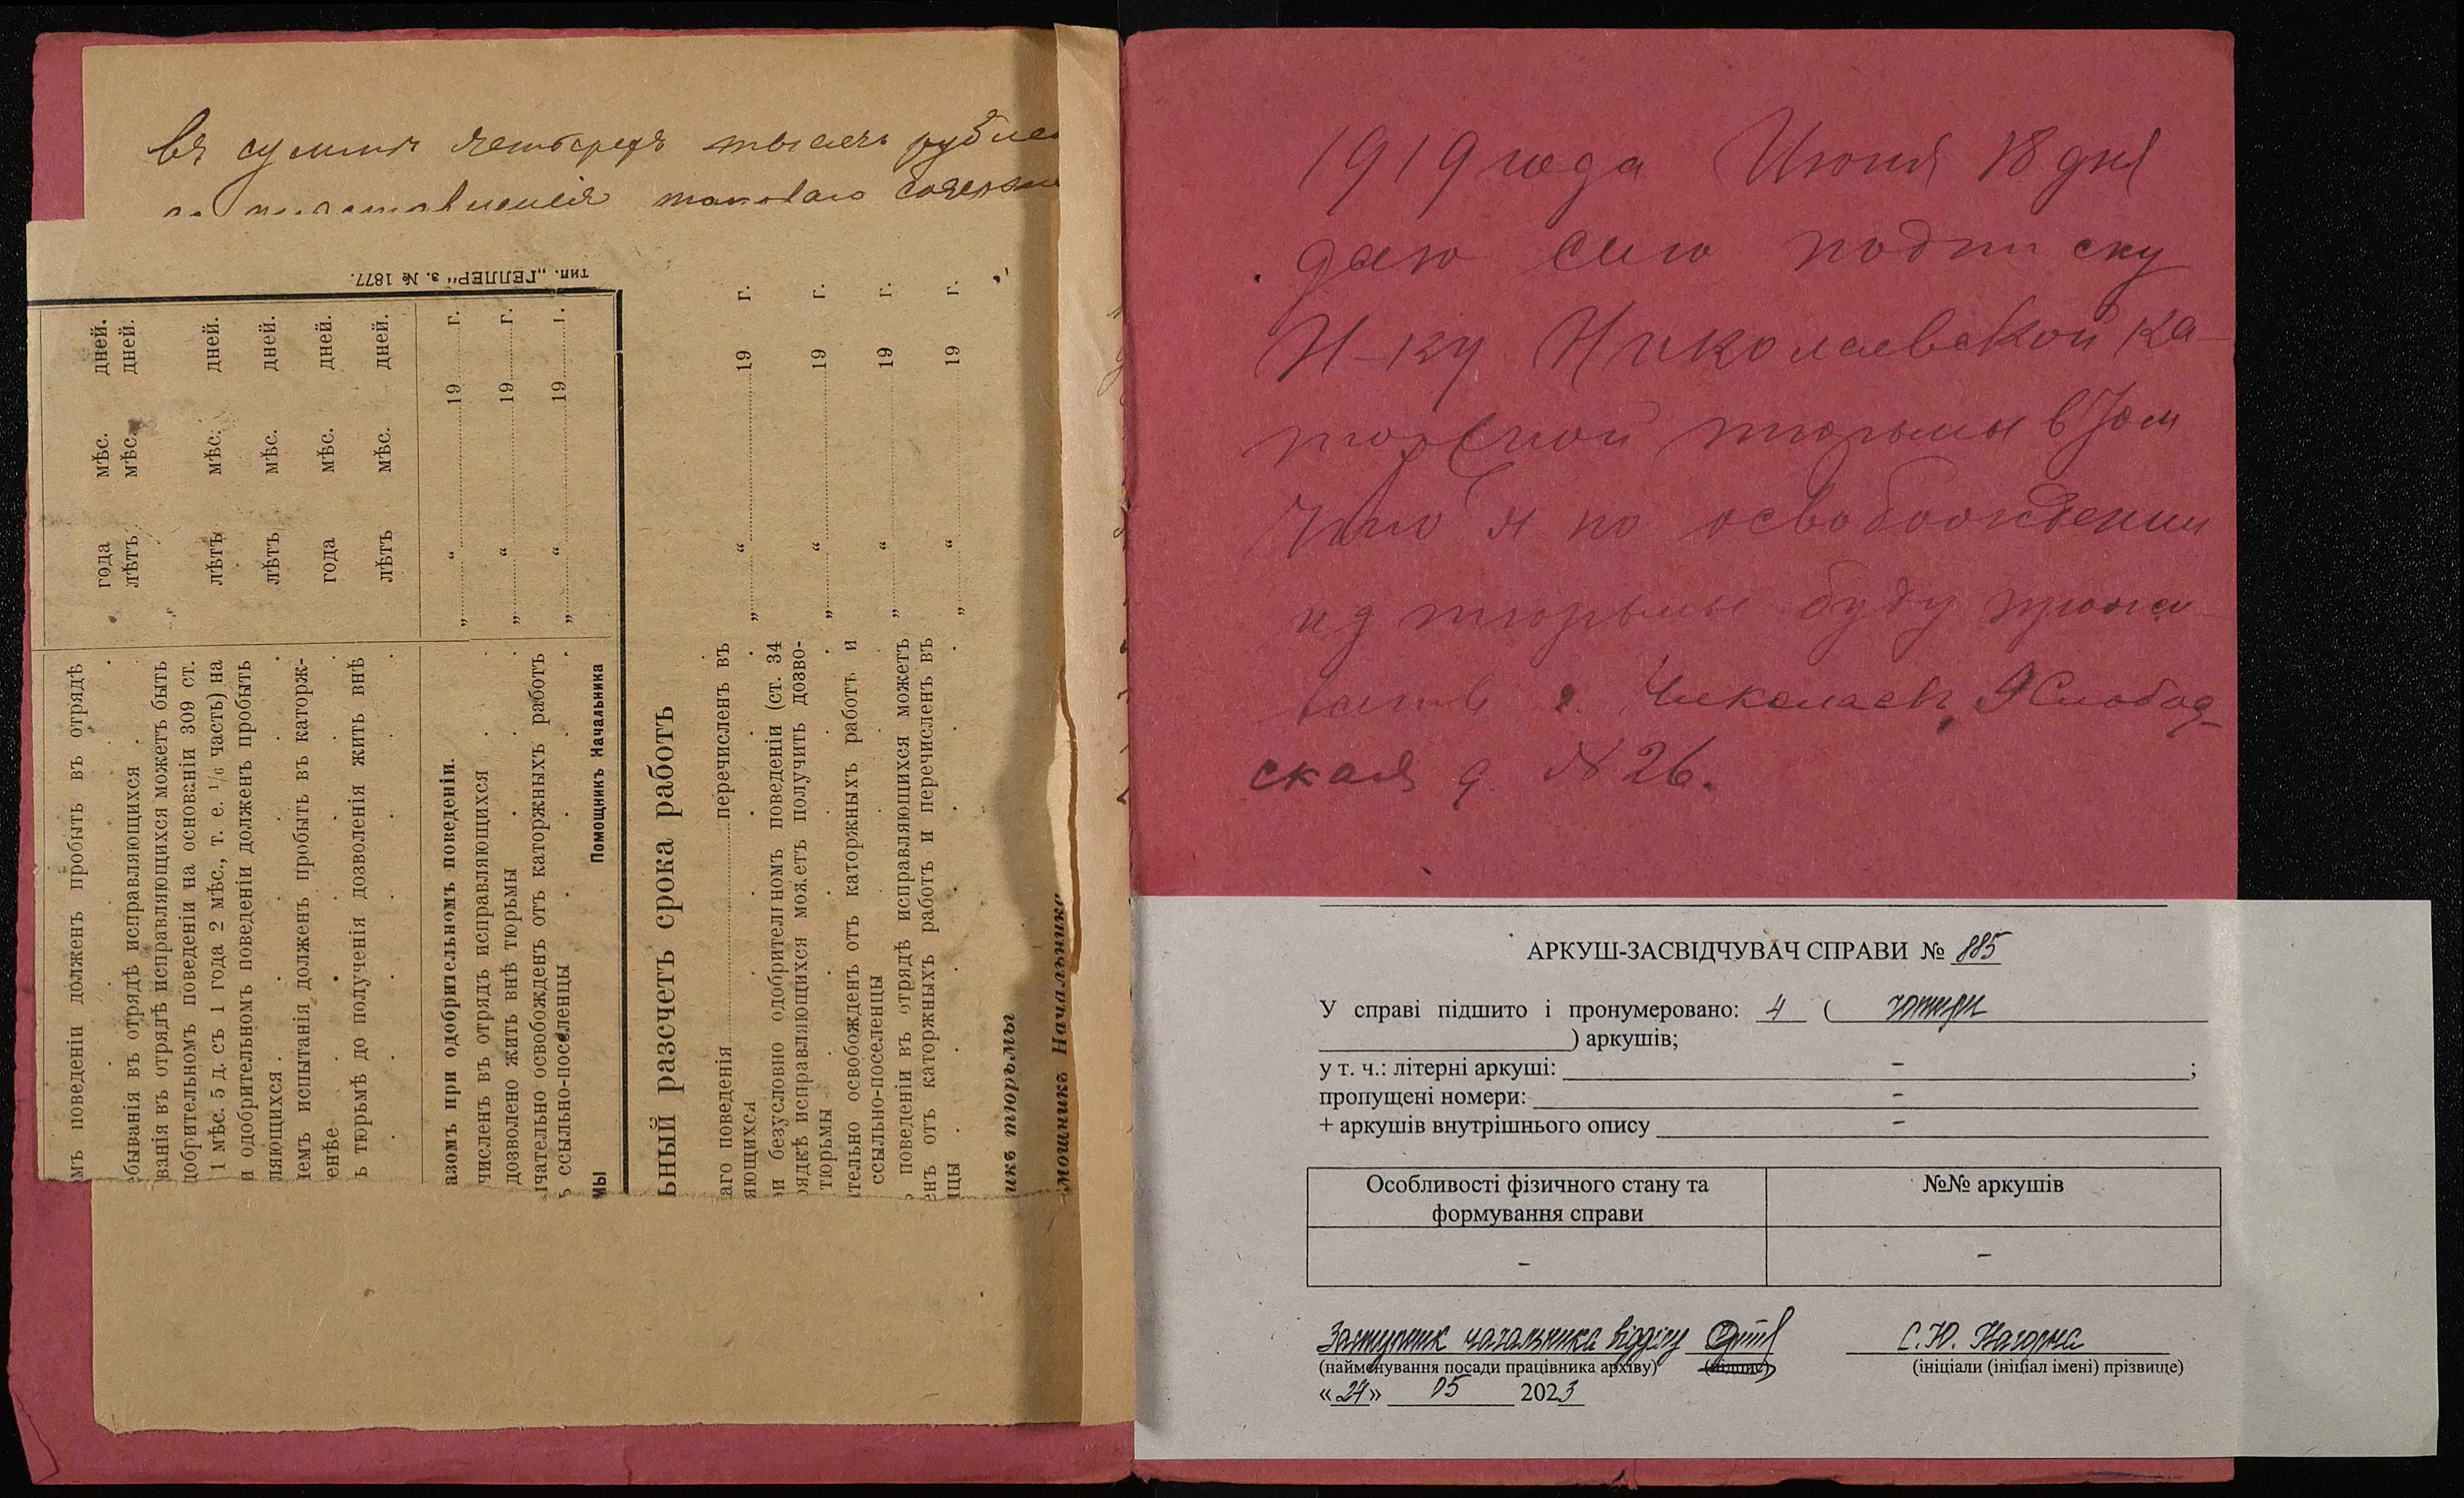 въ суммѣ четырехъ тысячъ рублей
представленія таковаго
тип. „ГЕЛЛЕРЪ“ з. № 1877.
мъ поведеніи долженъ пробыть въ отрядѣ
года мѣс. дней.
ебыванія въ отрядѣ исправляющихся
лѣтъ мѣс. дней.
ванія въ отрядѣ исправляющихся можетъ быть
добрительномъ поведеніи на основаніи 309 ст.
1 мѣс. 5 д. съ 1 года 2 мѣс., т. е. 1/6 часть) на
лѣтъ мѣс. дней.
и одобрительномъ поведеніи долженъ пробыть
ляющихся
лѣтъ мѣс. дней.
немъ испытанія долженъ пробыть въ каторж-
енѣе
года мѣс. дней.
ъ тюрьмѣ до полученія дозволенія жить внѣ
лѣтъ мѣс. дней.
азомъ при одобрительномъ поведеніи.
„ “ 19 г.
численъ въ отрядъ исправляющихся
дозволено жить внѣ тюрьмы
„ “ 19 г.
чательно освобожденъ отъ каторжныхъ работъ
ъ ссыльно-поселенцы
„ “ 19 г.
мы Помощникъ Начальника
ьный разсчетъ срока работъ
аго поведенія перечисленъ въ
яющихся
„ “ 19 г.
и безусловно одобрительномъ поведеніи (ст. 34
рядѣ исправляющихся можетъ получить дозво-
тюрьмы
„ “ 19 г.
тельно освобожденъ отъ каторжныхъ работъ и
ссыльно-поселенцы
„ “ 19 г.
поведеніи въ отрядѣ исправляющихся можетъ
енъ отъ каторжныхъ работъ и перечисленъ въ
нцы
„ “ 19 г.
икъ тюрьмы
мощникъ Начальника
1919 года Июня 18 дня
даю сию подписку
Н-ку Николаевской ка-
торжной тюрьмы в том
что я по освобождении
из тюрьмы буду прожи
вать г. Николаевъ, 9 Слобод-
ская д. № 26.
АРКУШ-ЗАСВІДЧУВАЧ СПРАВИ № 885
У справі підшито і пронумеровано: 4 ( чотири
) аркушів;
у т. ч.: літерні аркуші: - ;
пропущені номери: -
+ аркушів внутрішнього опису -
Особливості фізичного стану та
формування справи
№№ аркушів
-
-
Заступник начальника відділу С.Ю. Нагорна
(найменування посади працівника архіву) (підпис) (ініціали (ініціал імені) прізвище)
«24» 05 2023